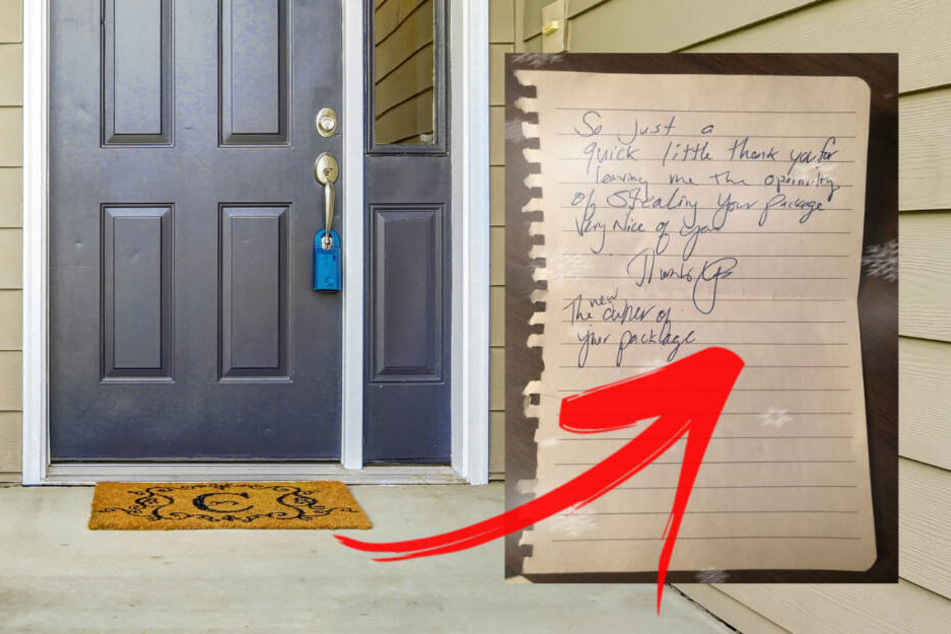 C
So Just a
quick little thank you for
leaving me the
of Stealing Your package
Very Nice of you
Thanks
The new owner of
your package